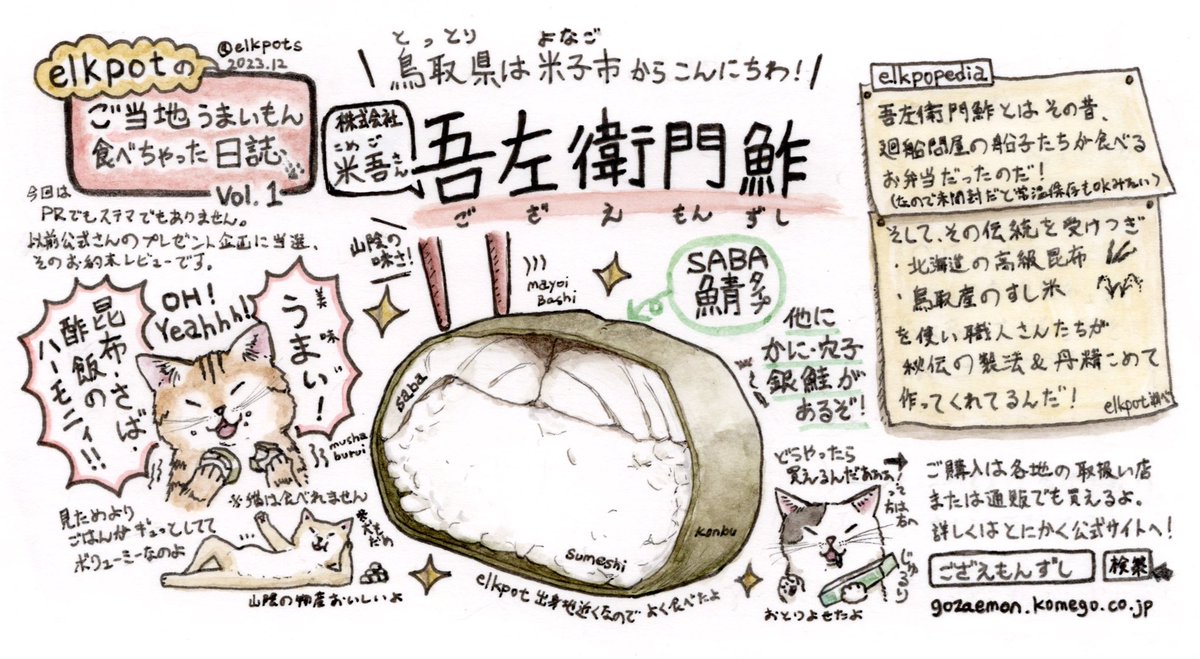 elkpotの
ご当地うまいもん
食べちゃった日誌、
Vol.1
@elkpots
2023.12
とっとり よなご
鳥取県は米子市からこんにちわ!
株式会社
こめご
米吾さん
吾左衛門鮓
ござえもんずし
今回は
PRでもステマでもありません。
以前公式さんのプレゼント企画に当選、
そのお約束レビューです。
山陰の
味さ!
OH!
Yeahhh!
美味
うまい!
昆布・さば・
酢飯の
ハーモニィ!!
musha
burui
※猫は食べれません
見ためより
ごはんがギュっとしてて
ボリューミーなのよ
※犬も
だめ
山陰の物産おいしいよ
mayoi
Bashi
SABA
鯖タイプ
他に
かに・穴子
銀鮭が
あるぞ!
saba
konbu
sumeshi
elkpot出身地近くなのでよく食べたよ
elkpopedia
吾左衛門鮓とはその昔、
廻船問屋の船子たちが食べる
お弁当だったのだ!
(なので未開封だと常温保存もOKみたい)
そして、その伝統を受けつぎ
・北海道の高級昆布
・鳥取産のすし米
を使い職人さんたちが
秘伝の製法&丹精こめて
作ってくれてるんだ!
elkpot調べ
どうやったら
買えるんだああぁ!
って方は
右へ
じゅるり
おとりよせたよ
ご購入は各地の取扱い店
または通販でも買えるよ。
詳しくはとにかく公式サイトへ!
ござえもんずし 検索
gozaemon.komego.co.jp